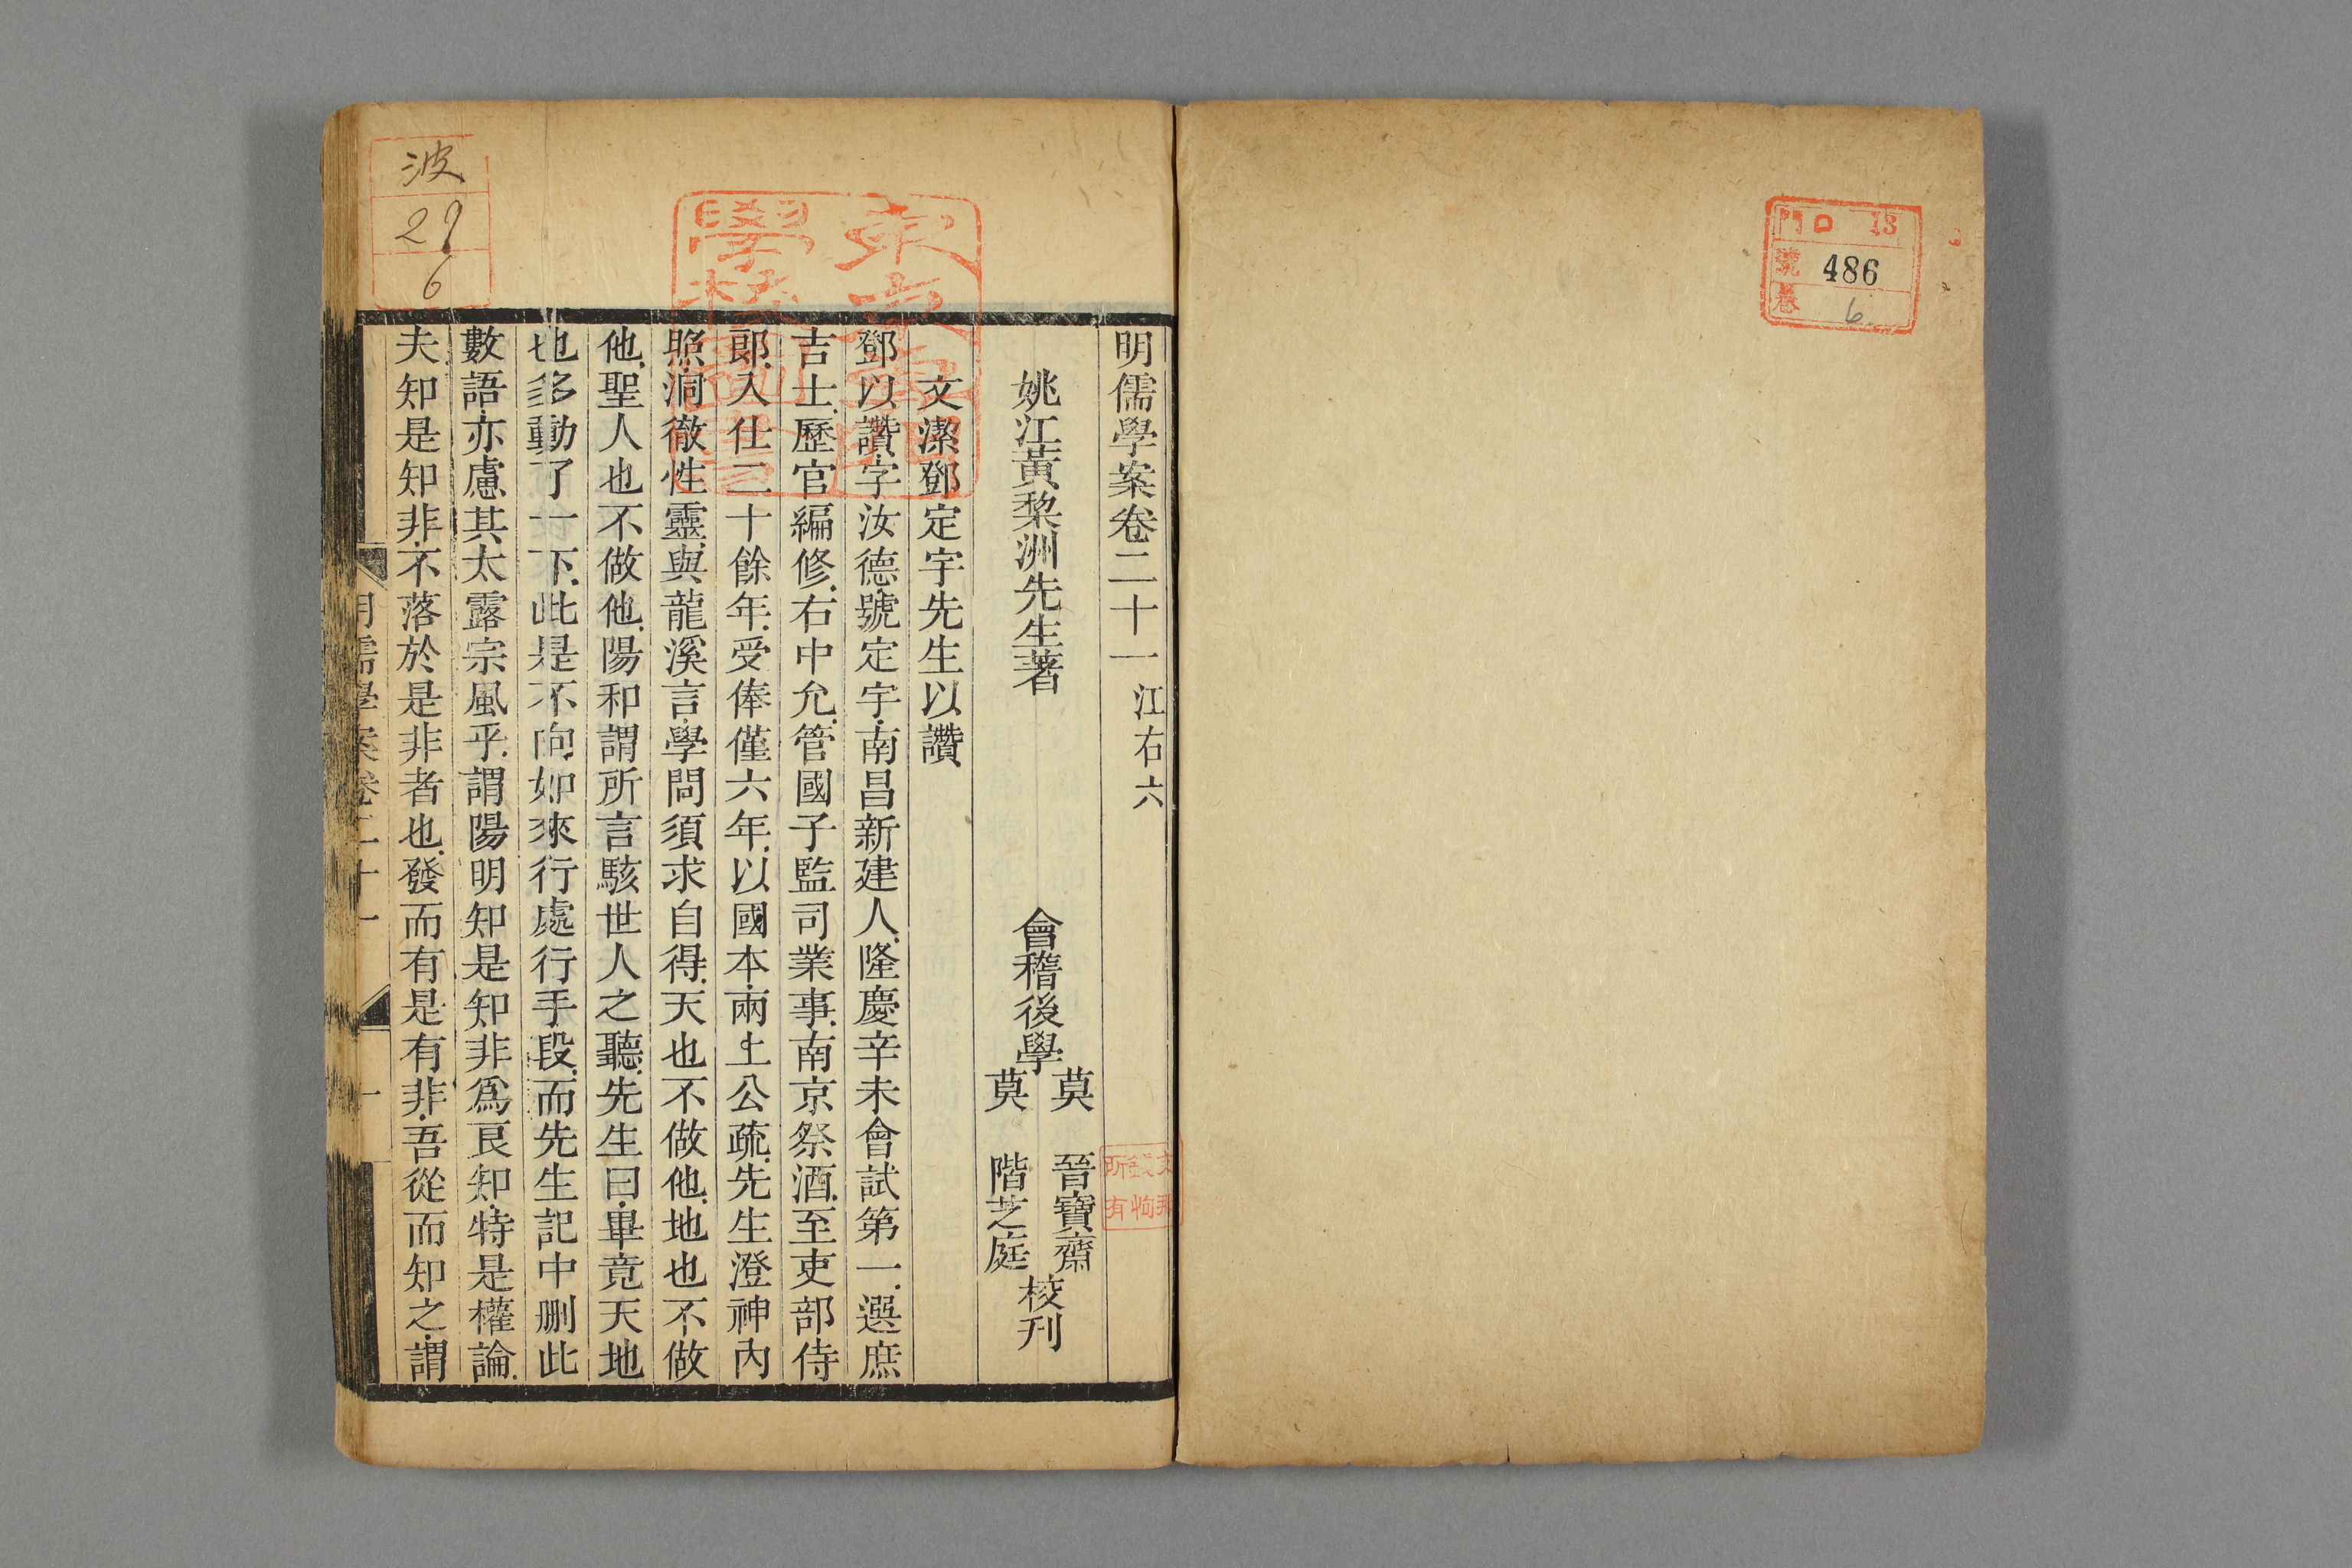 門 口 13
號 486
卷 6
明儒學案卷二十一 江右六
姚江黃棃洲先生著 會稽後學 莫晉寶齋 莫階芝庭 校刊
文潔鄧定宇先生以讚
鄧以讚字汝德號定宇南昌新建人隆慶辛未會試第一選庶
吉士歷官編修右中允管國子監司業事南京祭酒至吏部侍
郎入仕二十餘年受俸僅六年以國本兩上公疏先生澄神內
照洞徹性靈與龍溪言學問須求自得天也不做他地也不做
他聖人也不做他陽和謂所言駭世人之聽先生曰畢竟天地
也多動了一下此是不向如來行處行手段而先生記中刪此
數語亦慮其太露宗風乎謂陽明知是知非爲良知特是權論
夫知是知非不落於是非者也發而有是有非吾從而知之謂
明儒學案卷二十一 一
波
29
6